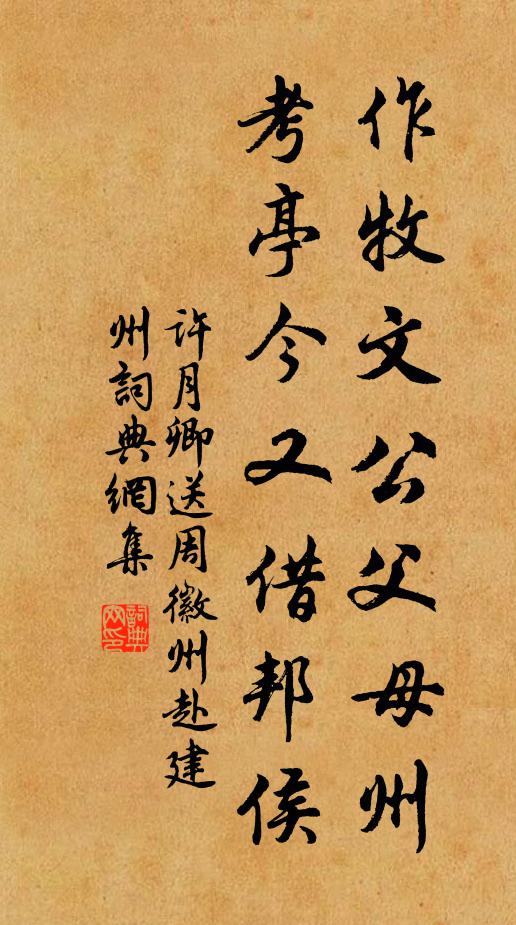 作牧文公父母州
考亭今又借邦侯
許月卿送周徽州赴建
州詞典網集
詞典网印